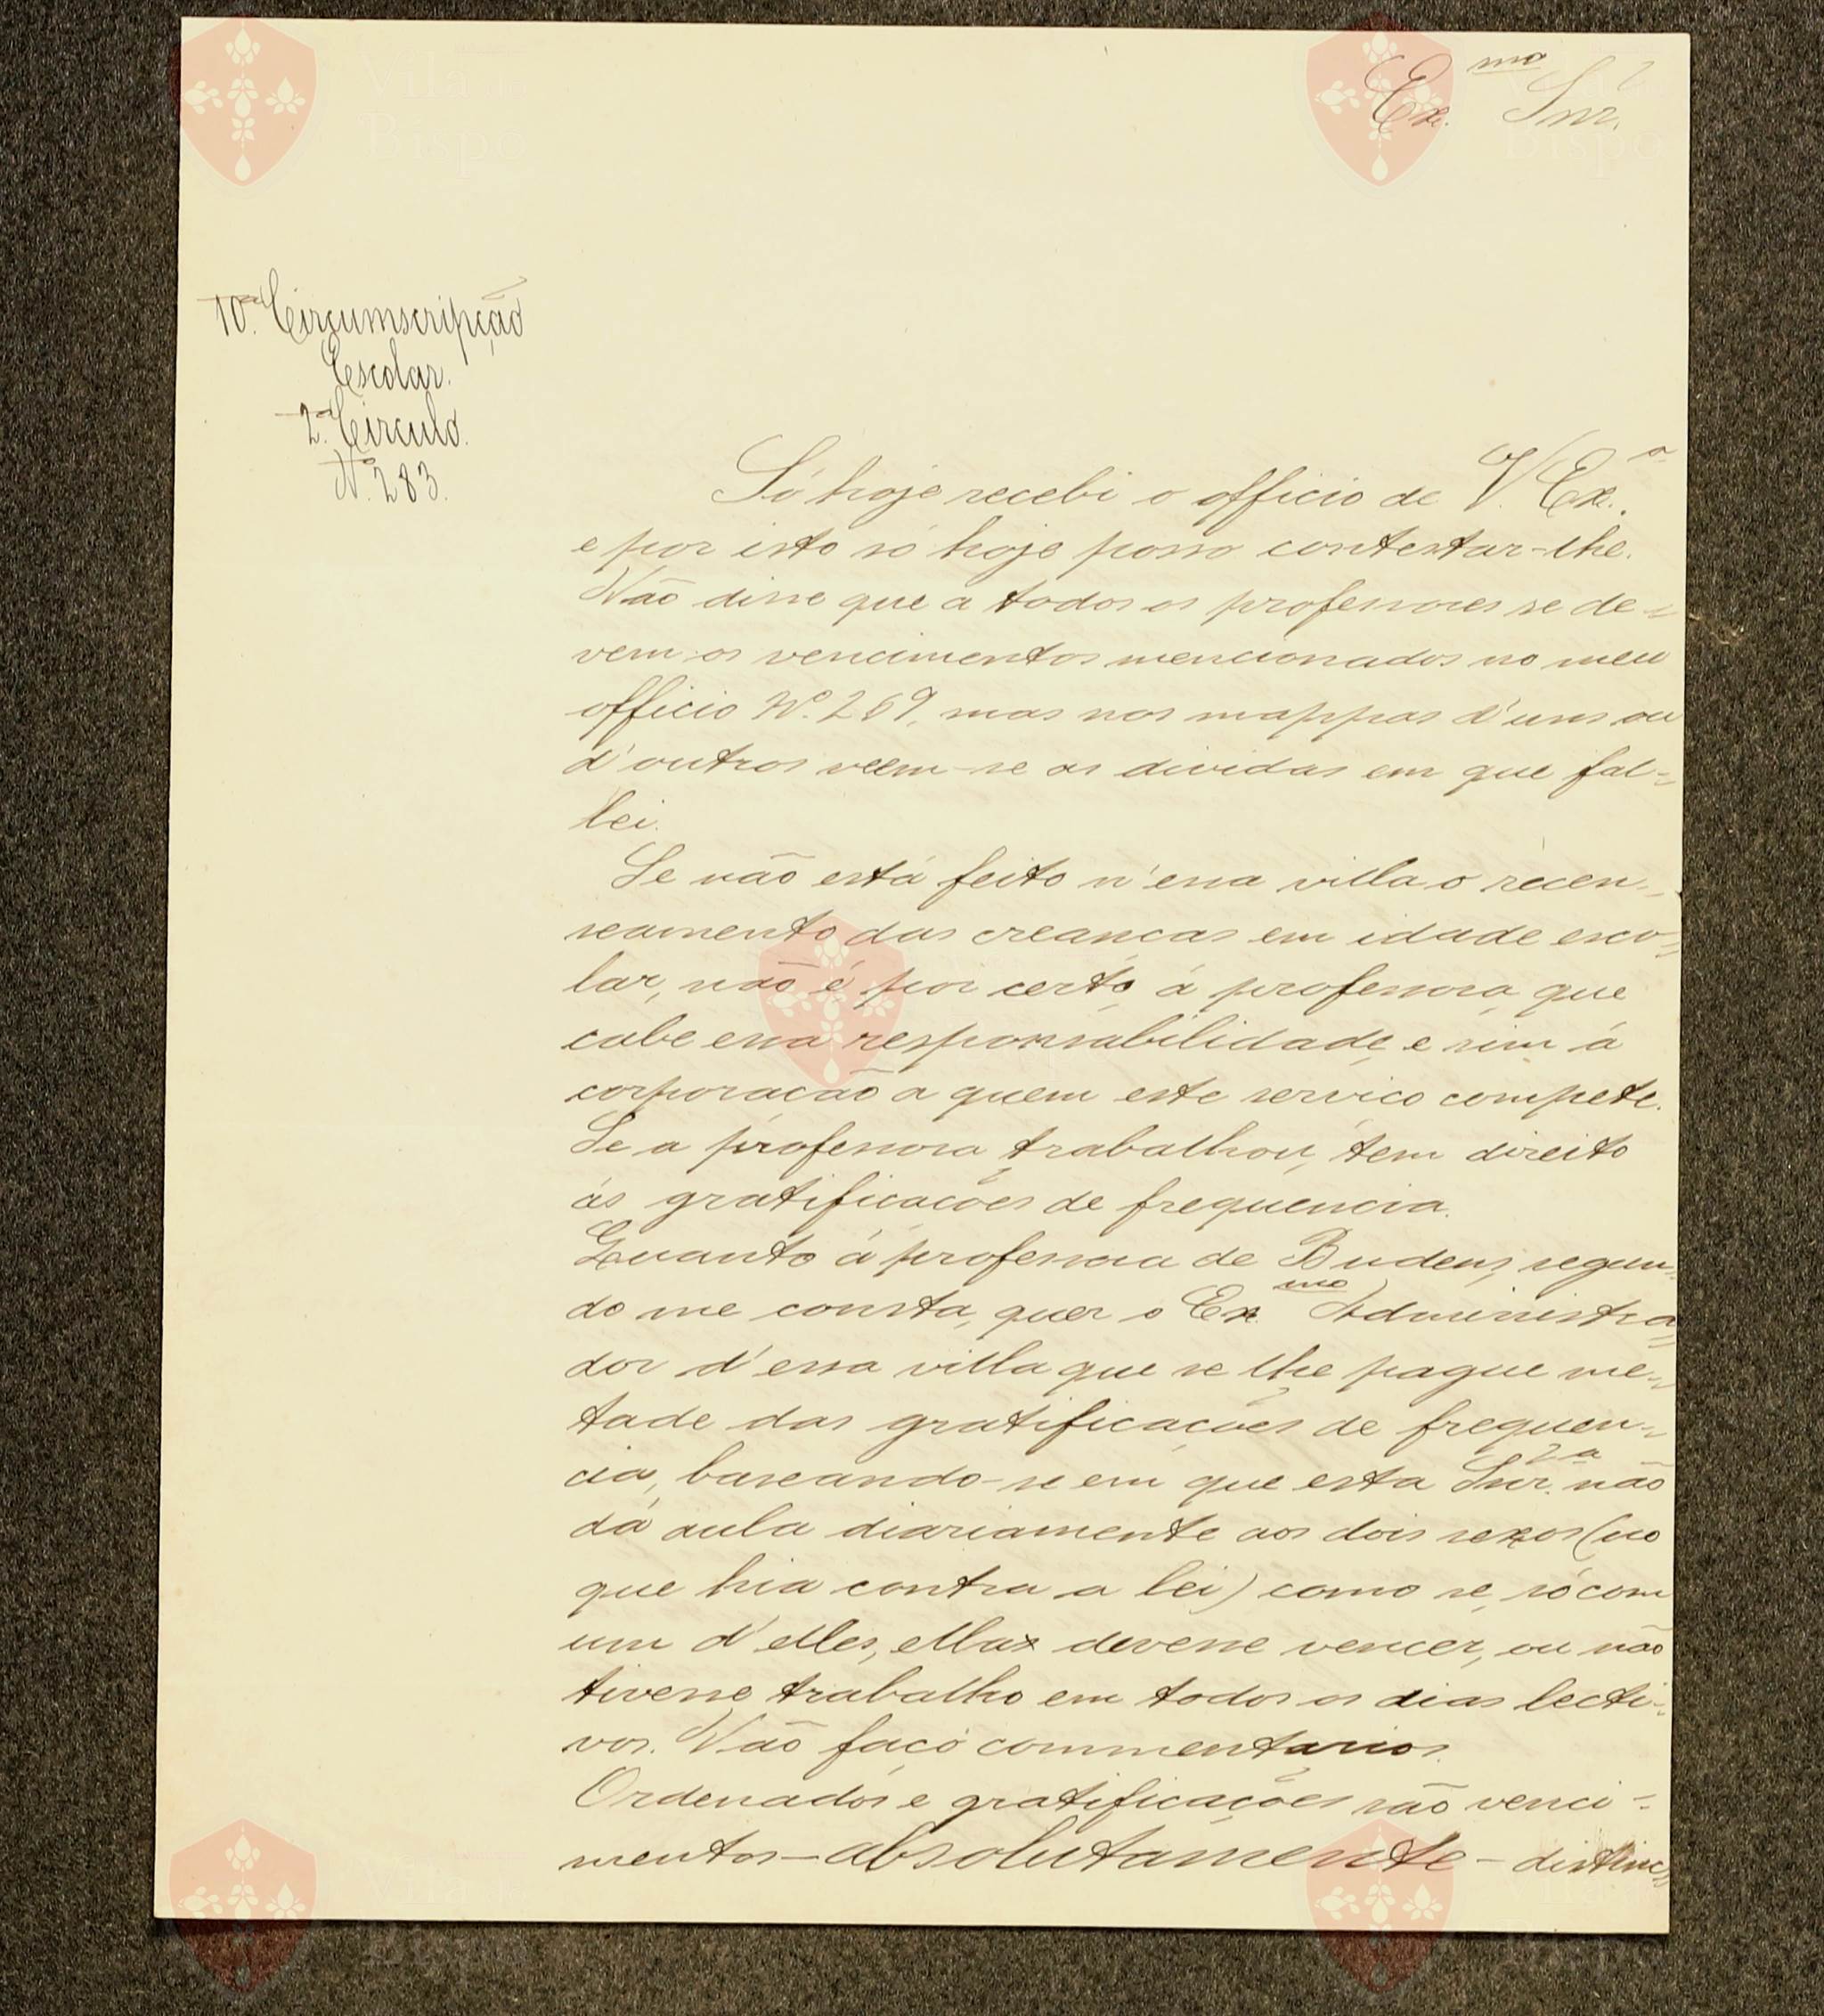 Ex.mo Snr.
10.a Circumscripção
Escolar.
2.o Circulo.
N.o 283.
Só hoje recebi o officio de V. Ex.a
e por isto só hoje posso contestar-lhe.
Não disse que a todos os professores se de-
vem os vencimentos mencionados no meu
officio N.o 269, mas nos mappas d'uns ou
d'outros veem-se as dividas em que fal-
lei.
Se não está feito n'essa villa o recen-
seamento das creanças em idade esco-
lar, não é por certo á professora que
cabe essa responsabilidade e sim á
corporação a quem este serviço compete.
Se a professora trabalhou, tem direito
ás gratificações de frequencia.
Quanto á professora de Budens, segun-
do me consta, quer o Ex.mo Administra-
dor d'essa villa que se lhe pague me-
tade das gratificações de frequen-
cia, baseando-se em que esta Snr.a não
dá aula diariamente aos dois sexos (no
que hia contra a lei) como se, só com
um d'elles, ellas devesse vencer, ou não
tivesse trabalho em todos os dias lecti-
vos. Não faço commentarios.
Ordenados e gratificações são venci-
mentos - absolutamente - distinc-
Vila do
Bispo